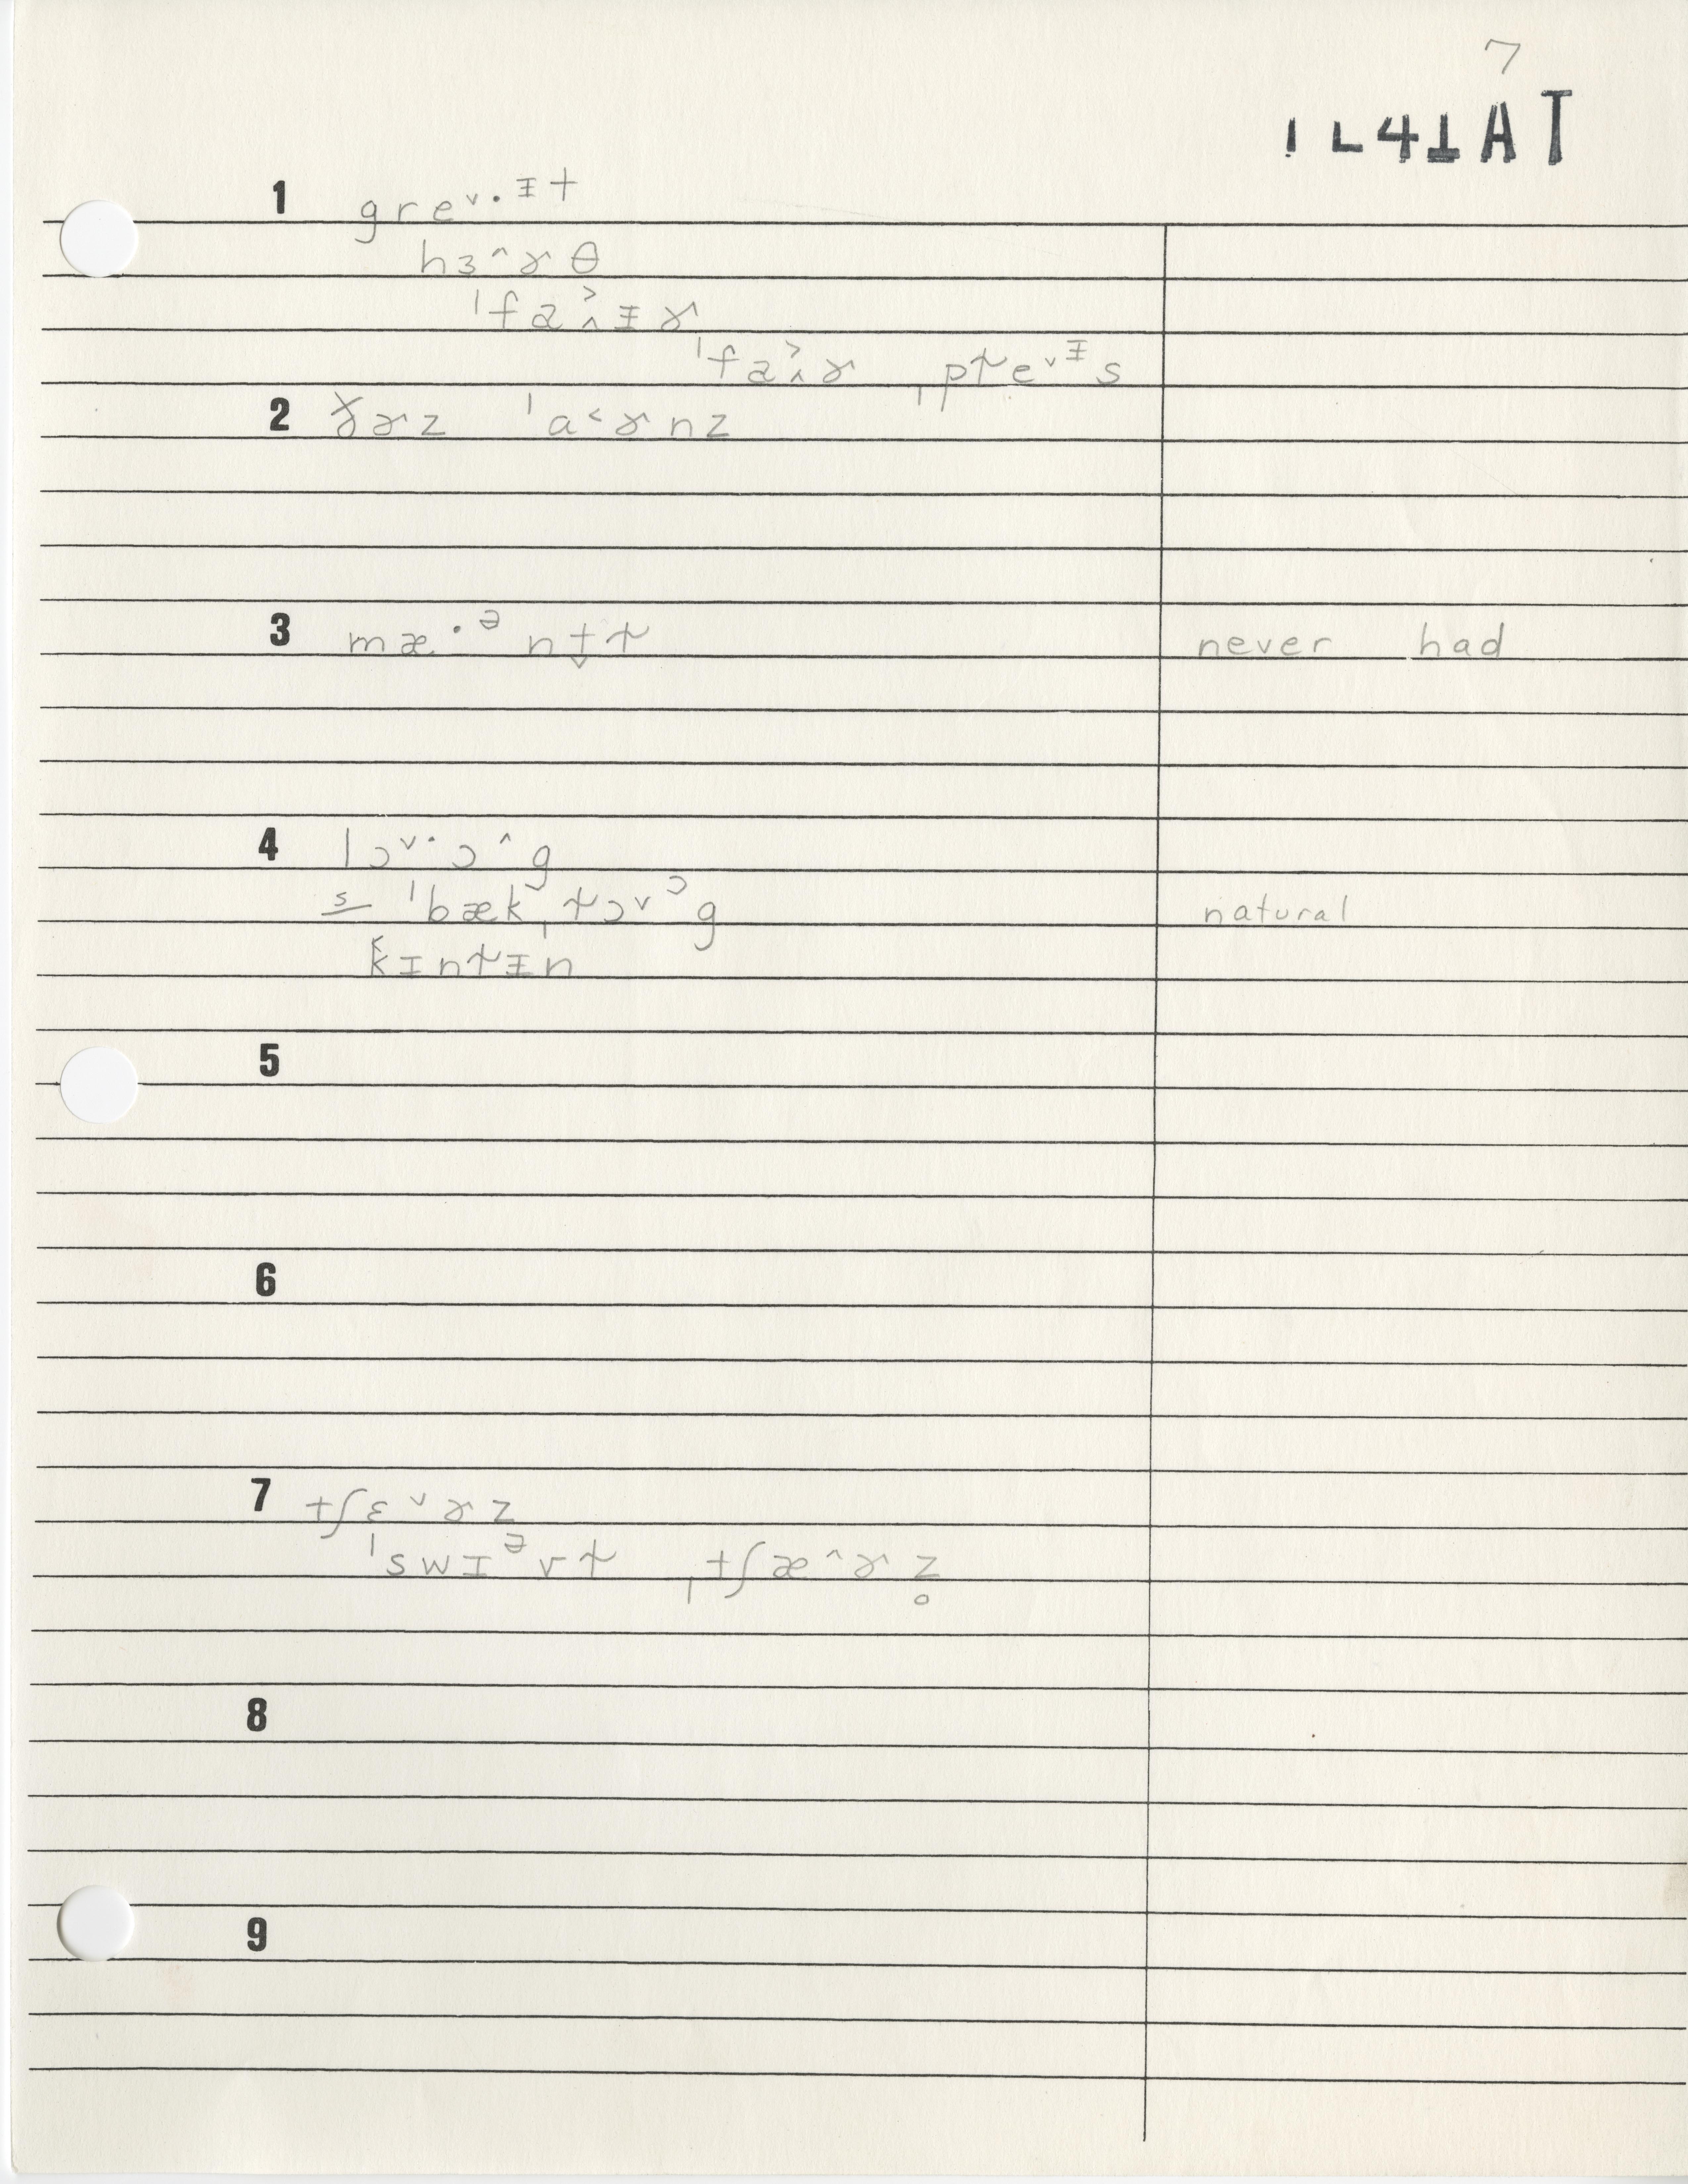 7
1L41AT
1 greᵛ·ᵻt
hɜ^ɚθ
ˈfa̭˃ᵻɚ
ˈfa̭˃ɚ ˌpɫeᵛᵻs
2 ɚz ˈa˂ɚnz
3 mæ·ᵊnt̬ɫ never had
4 lɔᵛ·ɔ^g
s= ˈbækˌɫɔᵛᵓg natural
k˂ɪnɫᵻn
5
6
7 tʃɛᵛɚz
ˈswɪᵊvɫ ˌtʃæ^ɚz̥
8
9